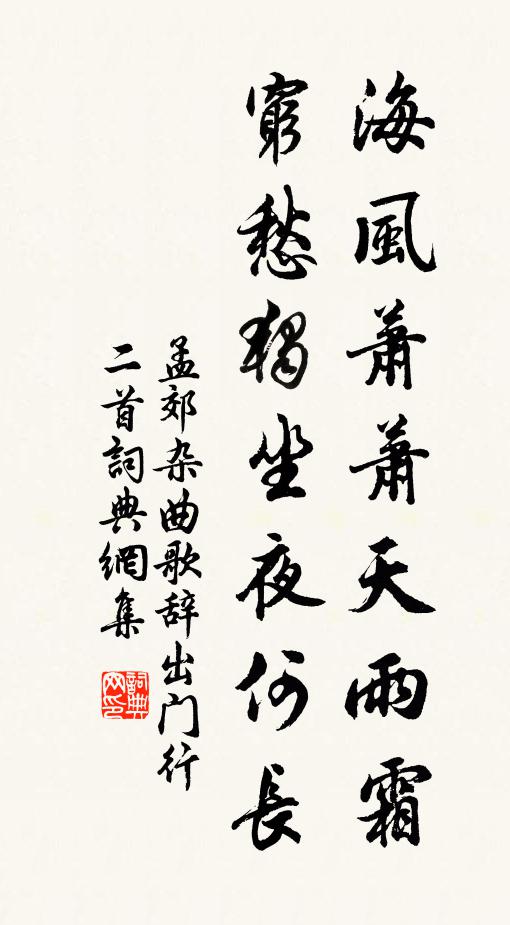 海風蕭蕭天雨霜
窮愁獨坐夜何長
孟郊杂曲歌辞出门行
二首詞典網集
詞典网印